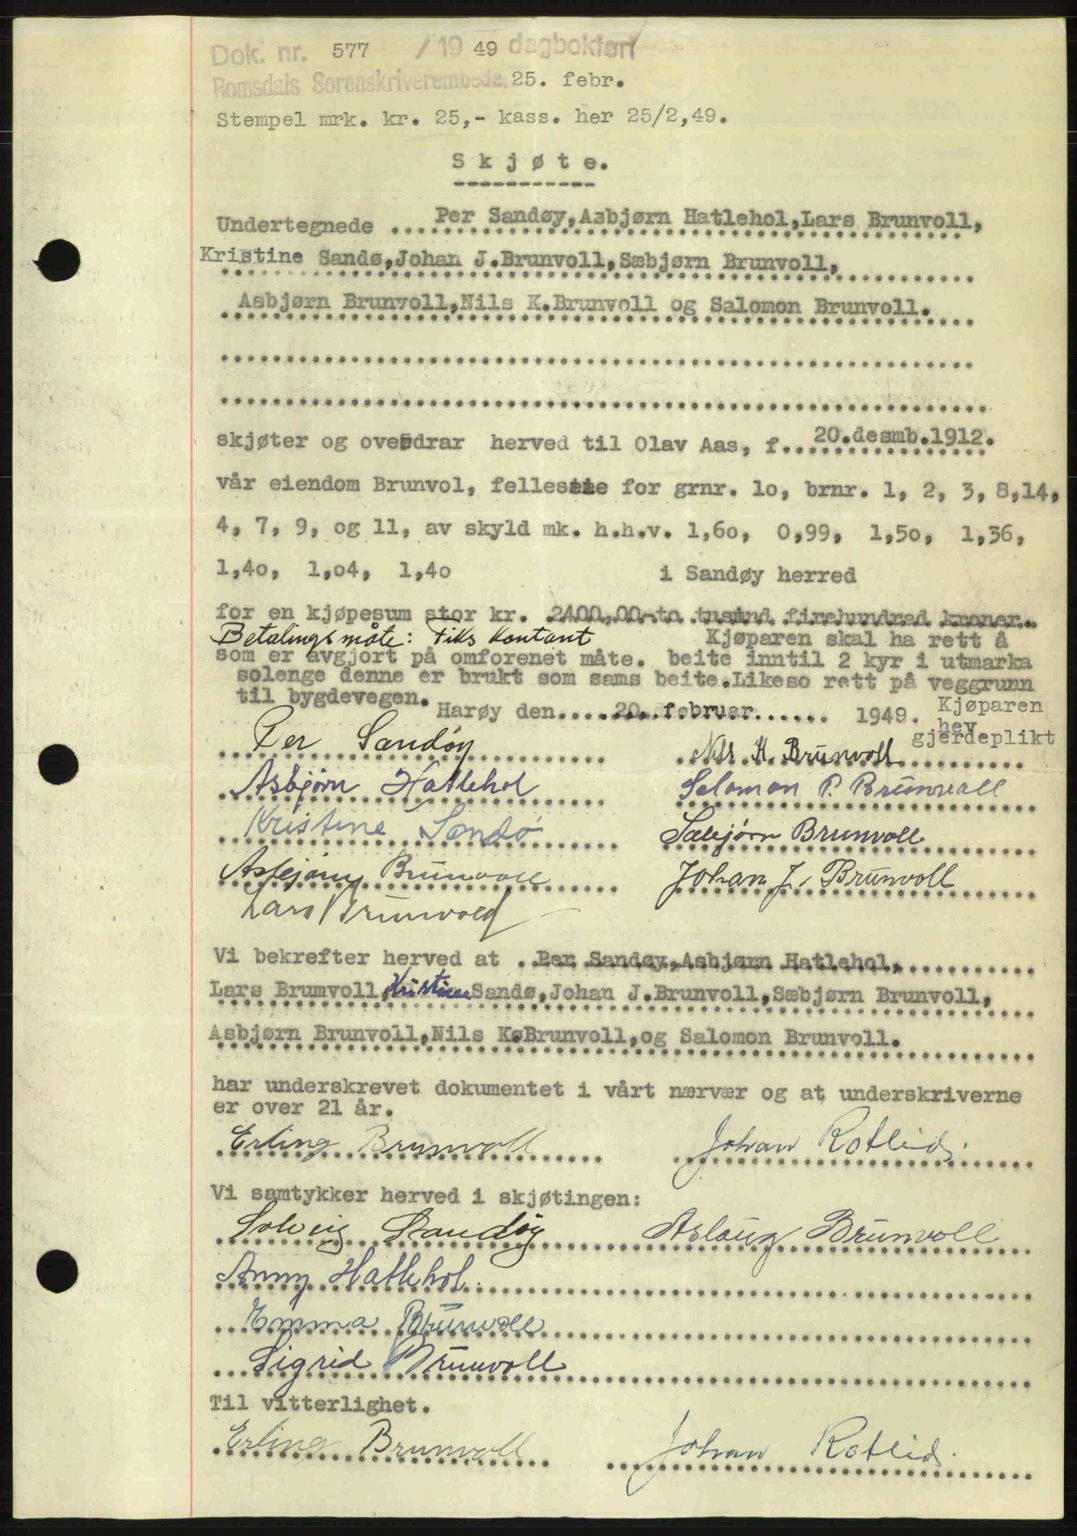 Dok. nr. 577 / 19 49 dagbokført
Romsdals Sorenskriverembede 25. febr.
Stempel mrk. kr. 25,- kass. her 25/2,49.
Skjøte.
Undertegnede Per Sandøy, Asbjørn Hatlehol, Lars Brunvoll,
Kristine Sandø, Johan J. Brunvoll, Sæbjørn Brunvoll,
Asbjørn Brunvoll, Nils K. Brunvoll og Salomon Brunvoll.
skjøter og overdrar herved til Olav Aas, f. 20. desmb. 1912.
vår eiendom Brunvol, felleseie for grnr. 1o, brnr. 1, 2, 3, 8, 14,
4, 7, 9, og 11, av skyld mk. h.h.v. 1,6o, 0,99, 1,5o, 1,36,
1,4o, 1,04, 1,4o i Sandøy herred
for en kjøpesum stor kr. 2400,00-to tusind firehundrad kroner.
Betalingsmåte: Fiks kontant Kjøparen skal ha rett å
som er avgjort på omforenet måte. beite inntil 2 kyr i utmarka
solenge denne er brukt som sams beite. Likeso rett på veggrunn
til bygdevegen.
Harøy den 20. februar 1949. Kjøparen
hev
gjerdeplikt
Per Sandøy Nils K. Brunvoll
Asbjørn Hatlehol Salomon P. Brunvoll
Kristine Sandø Sæbjørn Brunvoll
Asbjørn Brunvoll Johan J. Brunvoll
Lars Brunvold
Vi bekrefter herved at Per Sandøy, Asbjørn Hatlehol,
Lars Brumvoll, Kristine Sandø, Johan J. Brunvoll, Sæbjørn Brunvoll,
Asbjørn Brunvoll, Nils K. Brunvoll, og Salomon Brunvoll.
har underskrevet dokumentet i vårt nærvær og at underskriverne
er over 21 år.
Erling Brunvoll Johan Rotlid.
Vi samtykker herved i skjøtingen:
Solveig Sandøy Aslaug Brunvoll
Anny Hatlehol.
Emma Brunvoll
Sigrid Brunvoll
Til vitterlighet.
Erling Brunvoll Johan Rotlid.